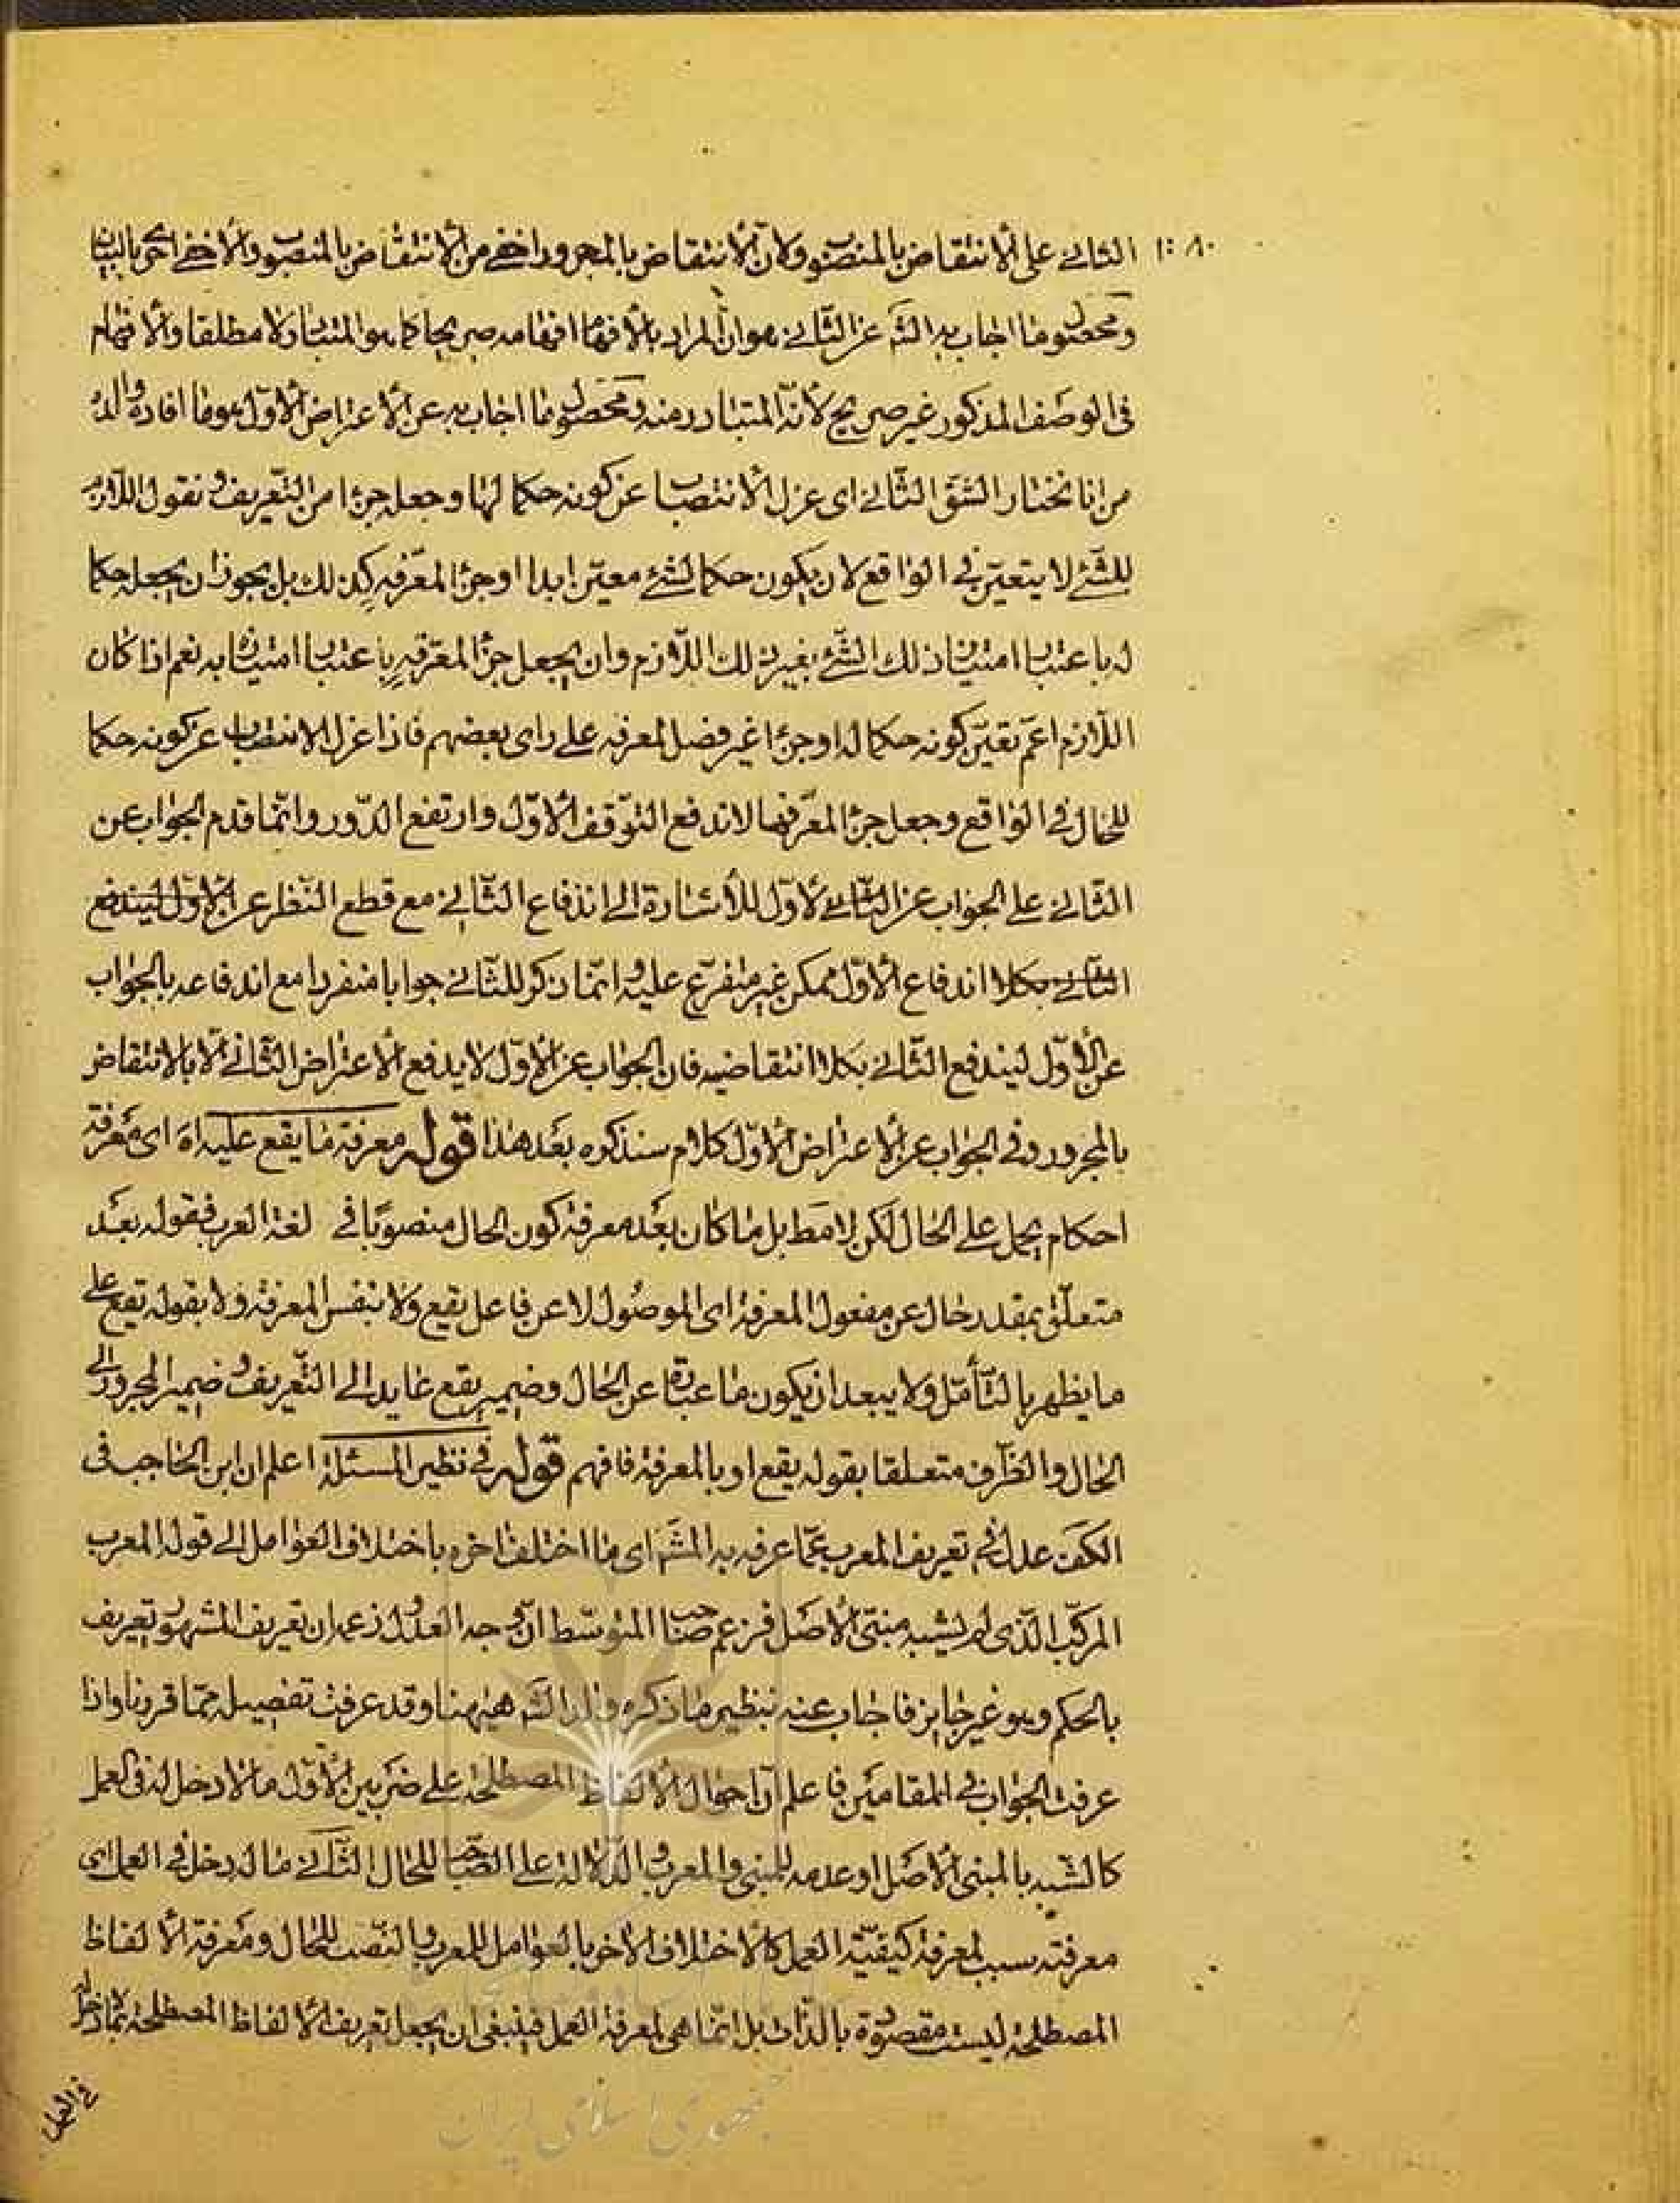 الثانى على الانتقاض بالمنصوب ولان الانتقاض بالمجرور اخفى من الانتقاض بالمنصوب والاخفى احق بالبيان
ومحصول ما اجاب به الشم عن الثانى هو ان المراد بالافهام افهامه صريحا كما هو المتبادر لا مطلقا والافهام
فى الوصف المذكور غير صريح لانه المتبادر منه ومحصول ما اجاب به عن الاعتراض الاول هو ما افاده والده
من انا نختار الشق الثانى اى عزل الانتصاب عن كونه حكما لها وجعله جزءا من التعريف ونقول اللازم
للشئ لا يتعين فى الواقع لان يكون حكما لشئ معين ابدا او جزء المعرفه كذلك بل يجوز ان يجعل حكما
له باعتبار امتياز ذلك الشئ بغير ذلك اللازم وان يجعل جزء المعرفه باعتبار امتيازه به نعم اذا كان
اللازم اعم تعين كونه حكما له او جزءا غير فصل لمعرفه على راى بعضهم فاذا عزل الانتصاب عن كونه حكما
للحال فى الواقع وجعل جزء المعرفها لاندفع التوقف الاول وارتفع الدور وانما قدم الجواب عن
الثانى على الجواب عن الاول للاشارة الى اندفاع الثانى مع قطع النظر عن الاول ليندفع
الثانى بكلا اندفاع الاول ممكن غير متفرع عليه وانما ذكر للثانى جوابا منفردا مع اندفاعه بالجواب
عن الاول ليندفع الثانى بكلا انتقاضيه فان الجواب عن الاول لا يدفع الاعتراض الثانى الا بالانتقاض
بالمجرور وفى الجواب عن الاعتراض الاول كلام سنذكره بعد هذا قوله معرفة ما يقع عليه اه اى معرفة
احكام يحمل على الحال لكن لا مط بل ما كان بعد معرفة كون الحال منصوبا فى لغة العرب فقوله بعد
متعلق بمقدر حال عن مفعول المعرفة اى الموصول لا عن فاعل يقع ولا بنفس المعرفة ولا بقوله تقع على
ما يظهر بالتأمل ولا يبعد ان يكون ما عبارة عن الحال وضمير يقع عايد الى التعريف وضمير المجرور الى
الحال والظرف متعلقا بقوله يقع او بالمعرفة فافهم قوله فى نظير المسئلة اعلم ان ابن الحاجب فى
الكف عدل فى تعريف المعرب عما عرفه به المشم اى ما اختلف اخره باختلاف العوامل الى قوله المعرب
المركب الذى لم يشبه مبنى الاصل فزعم صاحب المتوسط ان وجه العدول زعمه ان تعريف المشهور تعريف
بالحكم وهو غير جايز فاجاب عنه بنظير ما ذكره والد الشم هيهنا وقد عرفت تفصيله مما قررنا واذا
عرفت الجواب فى المقامين فاعلم ان احوال الالفاظ المصطلحة على ضربين الاول ما لا دخل له فى العمل
كالشبه بالمبنى الاصل او عدمه للمبنى والمعرب والدلالة على الصاحب للحال الثانى ما له دخل فى العمل اى
معرفته سبب لمعرفة كيفية العمل كالاختلاف الاخر بالعوامل للمعرب والنصب للحال ومعرفة الالفاظ
المصطلحة ليست مقصودة بالذات بل انما هى لمعرفة العمل فينبغى ان يجعل تعريف الالفاظ المصطلحة بما لا دخل له
فى العمل
جمهوری اسلامی ایران